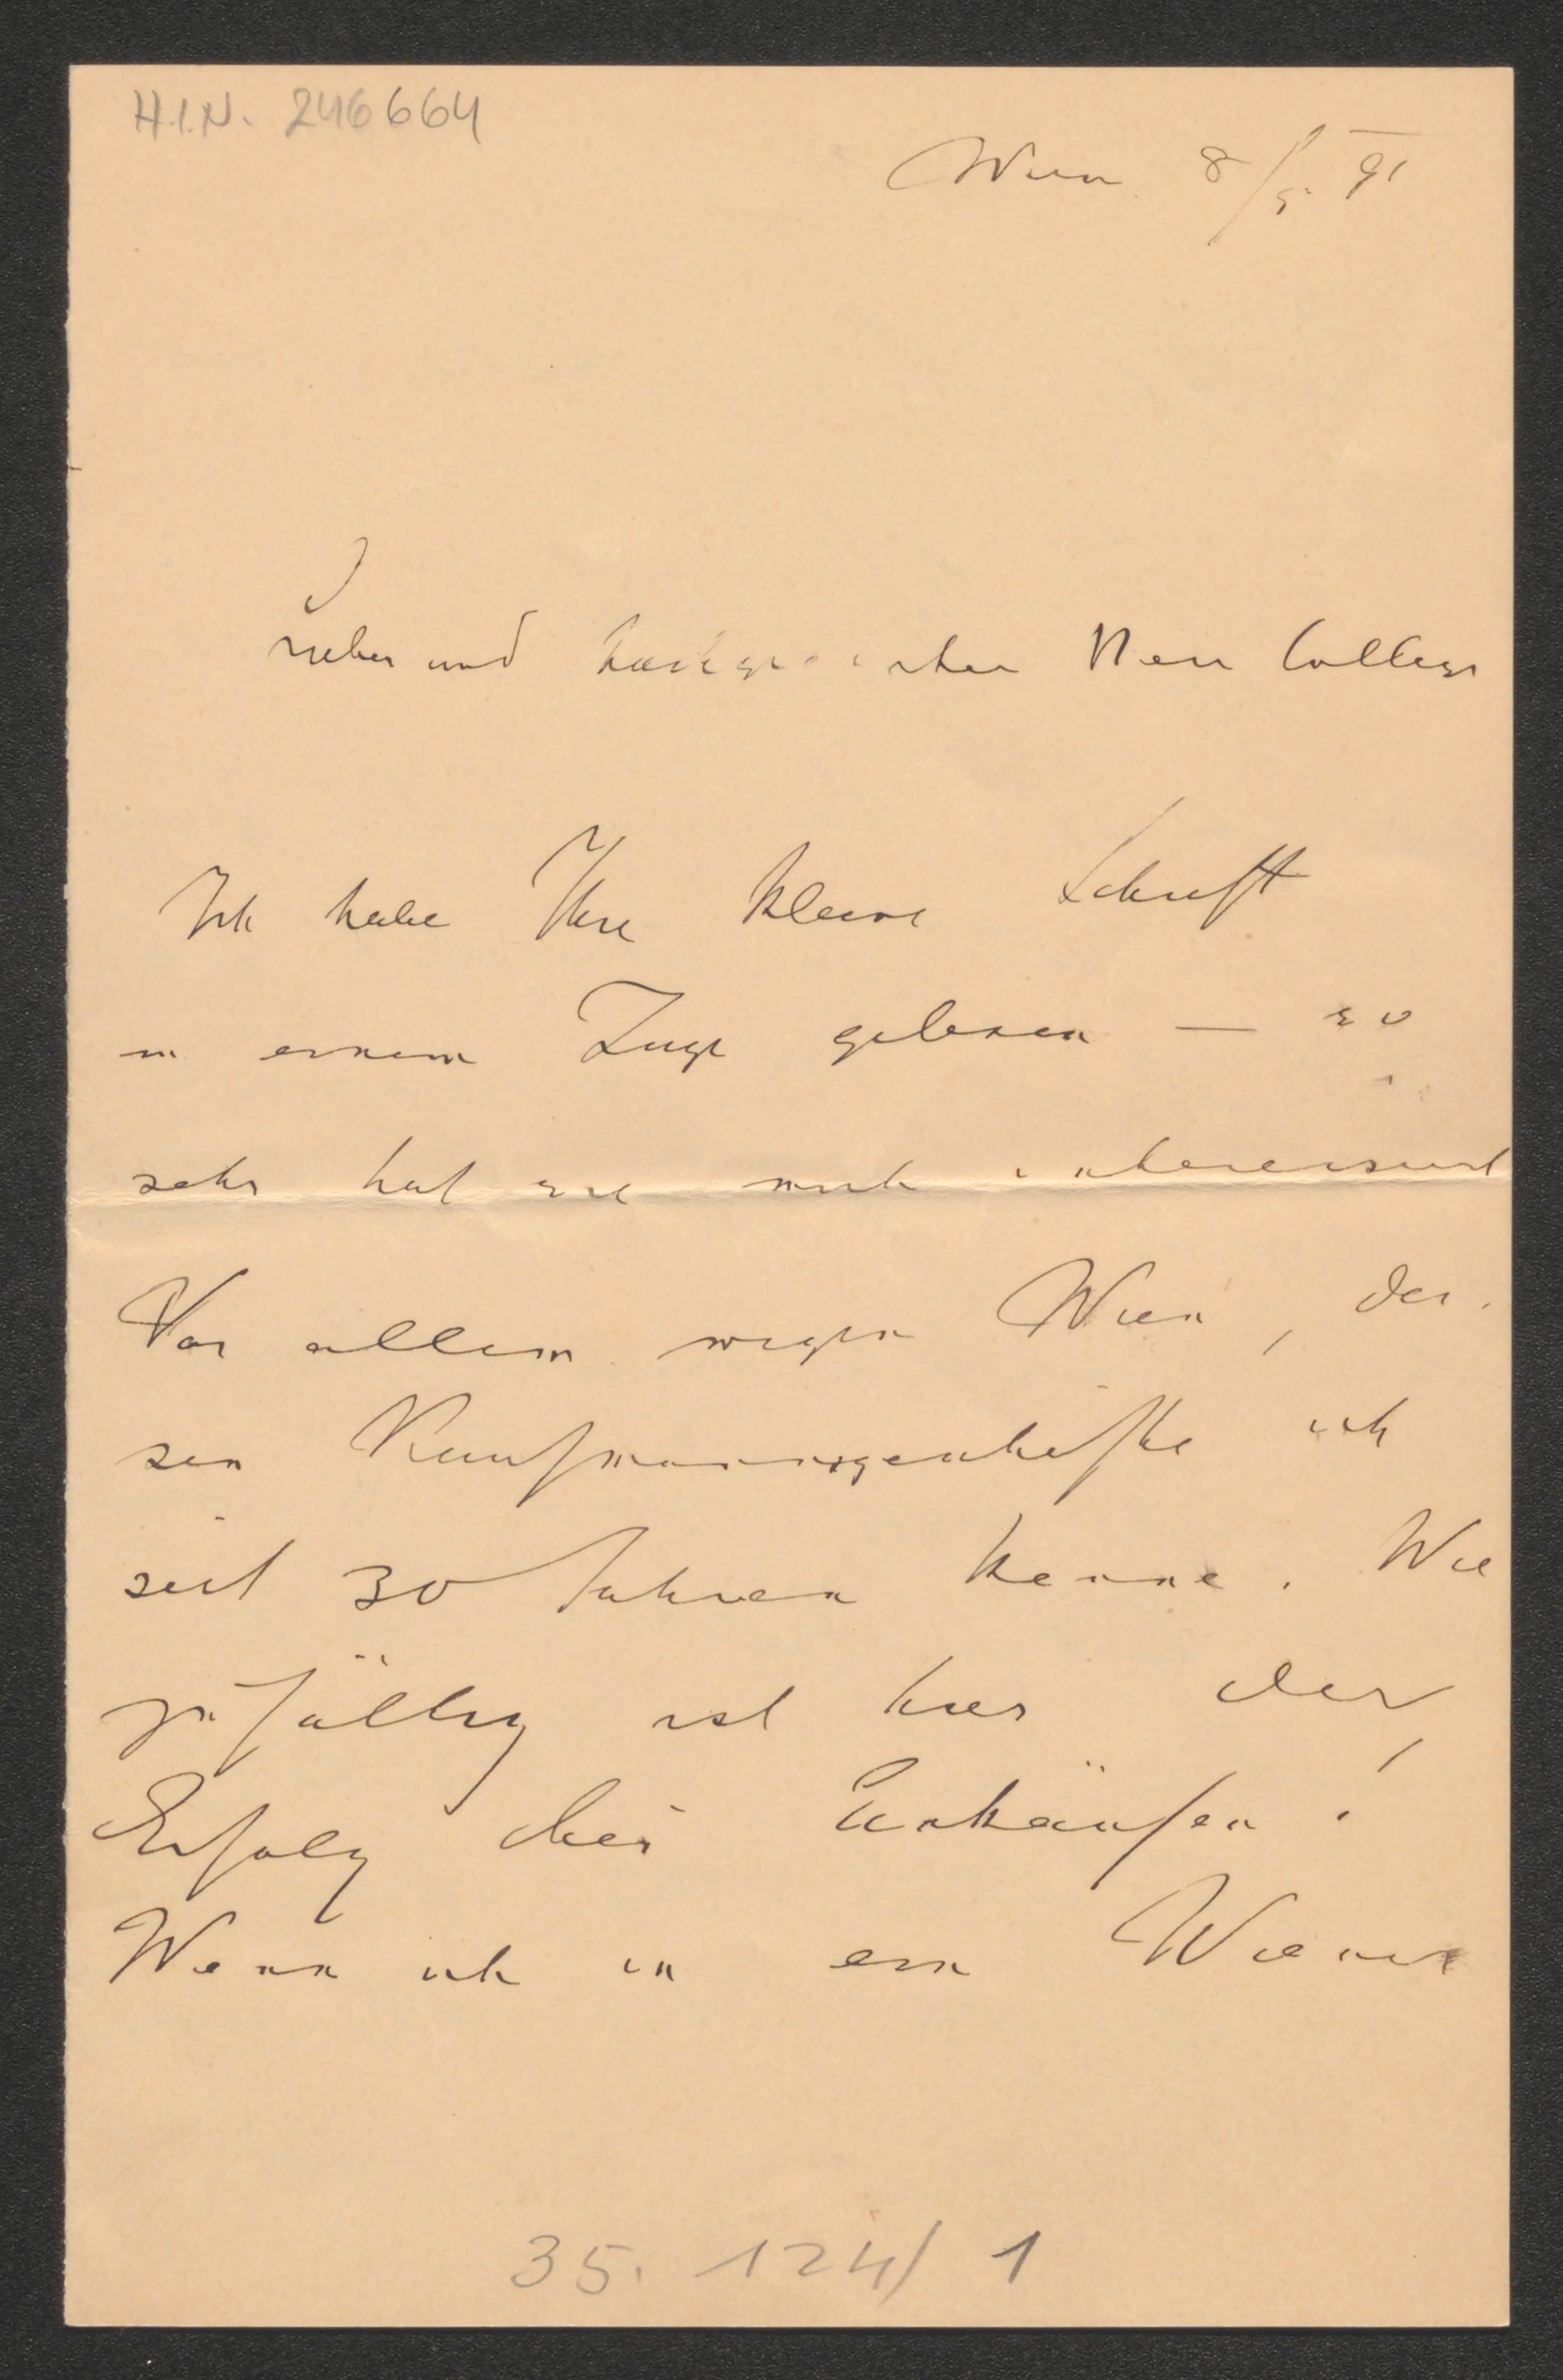 H.I.N. 246664
Wien 8/5. 91
Lieber und hochgeehrter Herr College
Ich habe Ihre kleine Schrift
in einem Zuge gelesen — so
sehr hat sie mich interessirt
Vor allem wegen Wien, des-
sen Kaufmannsgeschäfte ich
seit 30 Jahren kenne. Wie
zufällig ist hier der
Erfolg bei Einkäufen!
Wenn ich in ein Wiener
35. 124/1